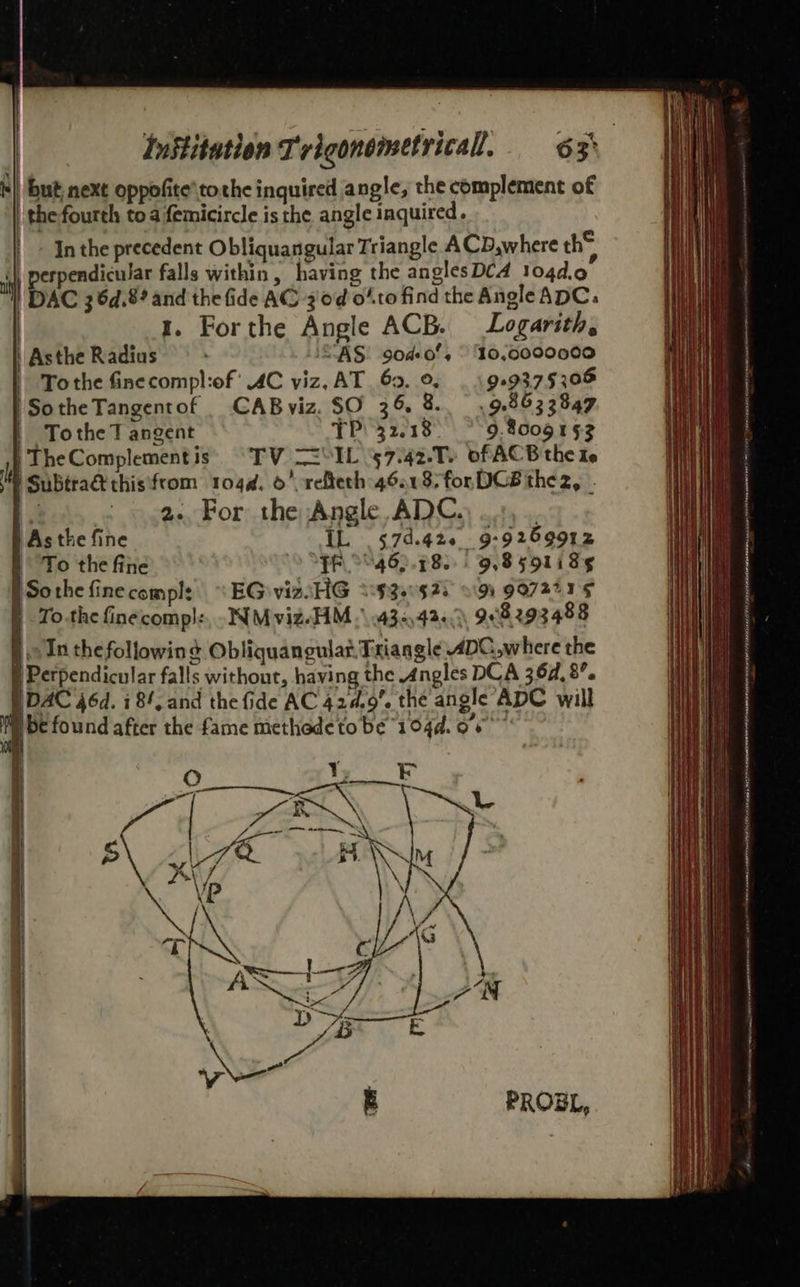 Inſtitution Trigonometricall. 63
but next oppoſite to the inquired angle, the complement of
the fourth to a ſemicircle is the angle inquired.
In the precedent Obliquangular Triangle ACD, where the
perpendicular falls within, having the angles DCA 104d.0
DAC 36d.8' and the ſide AC 30d 0'. to find the Angle ADC.
1. For the Angle ACB. Logarith.
As the Radius AS 90d.0'. 10.0000000
To the ſine compl:of AC viz, AT 60. 0. 9.9375306
So the Tangent of CAB viz. SO 36. 8. 9.8633847
To the Tangent TP 32.18 9.8009153
The Complement is TV = IL 57.42. T. of ACB the 1.
Subtract this from 104d. 0'. reſteth 46.18. for DCB the 2.
2. For the Angle ADC.
As the ſine IL 57d.42. 9.9269912
To the ſine IF. 46.18. 9.8591185
So the ſine compl: EG viz. HG 53. 52. 9.9072215
To the ſine compl: NM viz. HM 43. 42. 9.8393488
In the following Obliquangular Triangle ADC, where the
Perpendicular falls without, having the Angles DCA 36d. 8'.
DAC 46d. 18'. and the ſide AC 42d.9'. the angle ADC will
be found after the ſame methode to be 104d. 0'.
O Y F
R L
S Q H M
X P
T C G
A I N
D B E
V
E PROBL,